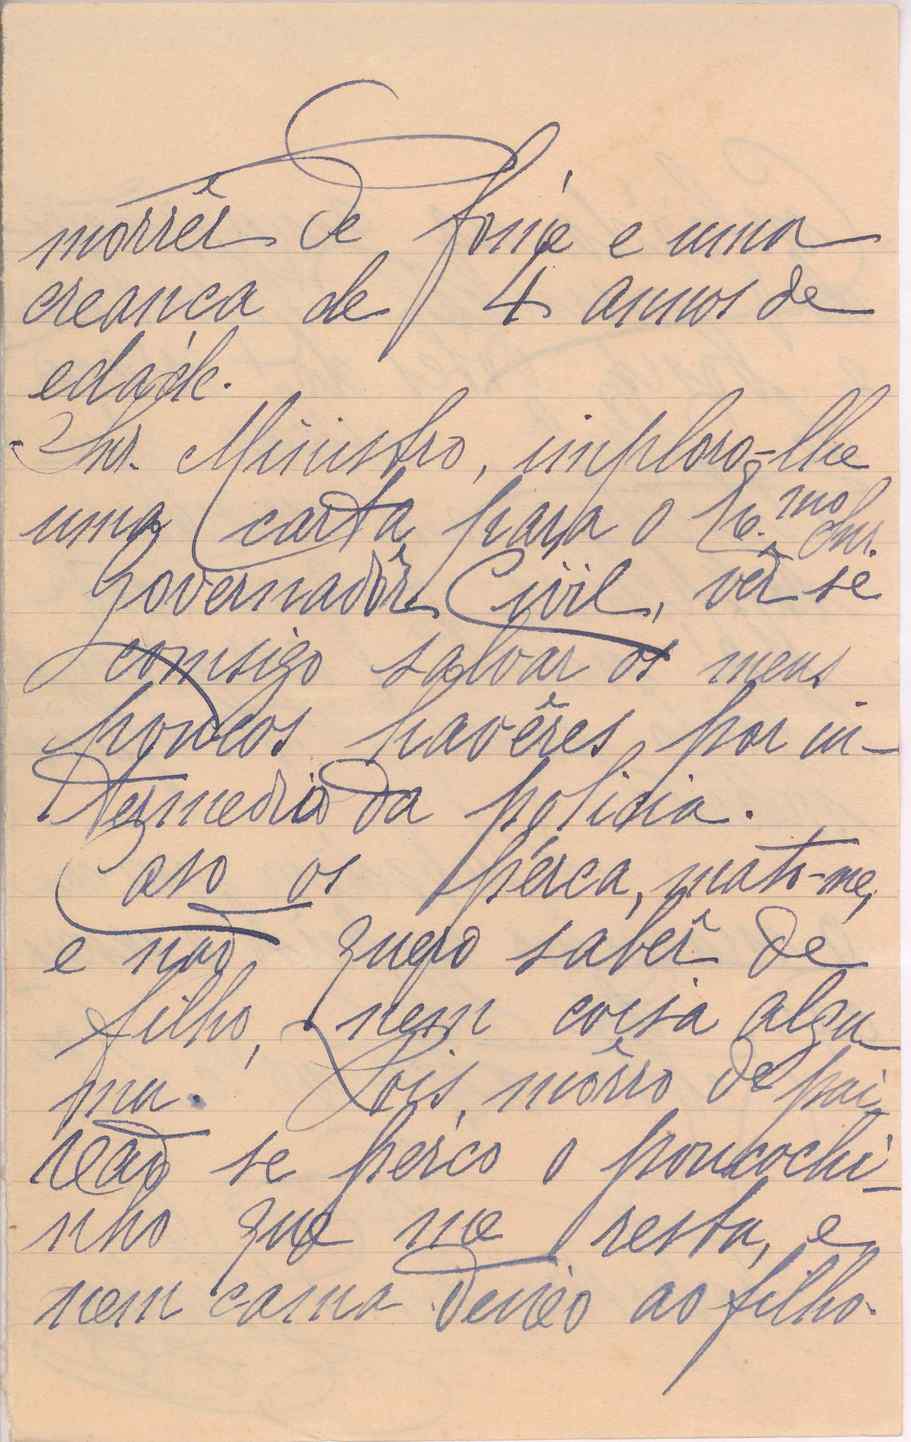 morrêr de fome e uma
creanca de 4 annos de
edade.
Snr. Ministro, imploro-lhe
uma carta para o Ex.mo Snr.
Governadôr Civil, vêr se
comsigo salvar os meus
poucos havêres por in-
termedio da policia.
Caso os pérca, mato-me,
e não quero sabêr de
filho, nem coisa algu
ma. Pois, môrro de pai
xão se pérco o poucochi-
nho que me resta, e
nem cama deixo ao filho.